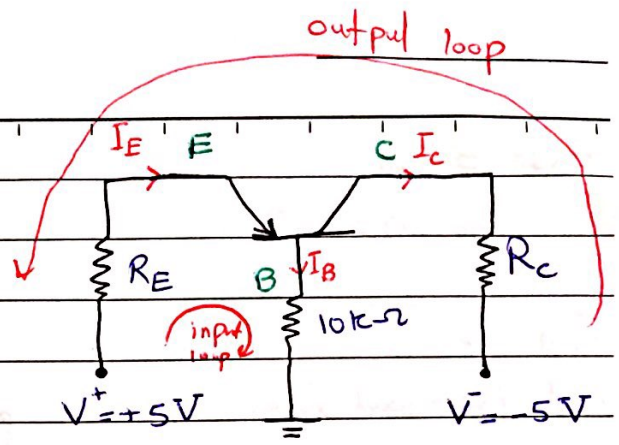 output loop
I_E E C I_C
R_E B I_B R_C
10kΩ
input
loop
V⁺=+5V V⁻=-5V